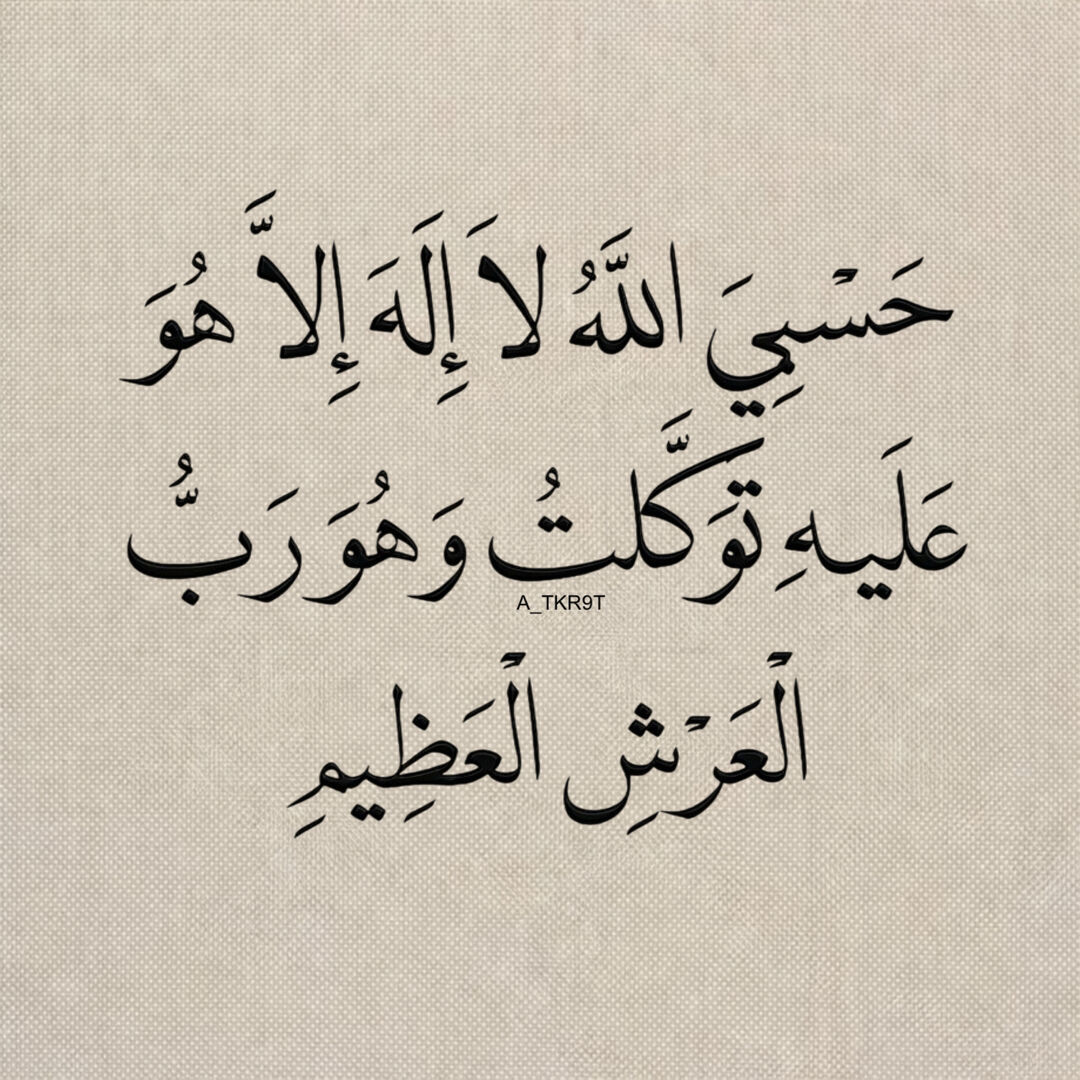 حَسْبِيَ اللَّهُ لاَ إِلَهَ إِلاَّ هُوَ
عَلَيهِ تَوَكَّلتُ وَهُوَ رَبُّ
A_TKR9T
الْعَرْشِ الْعَظِيمِ